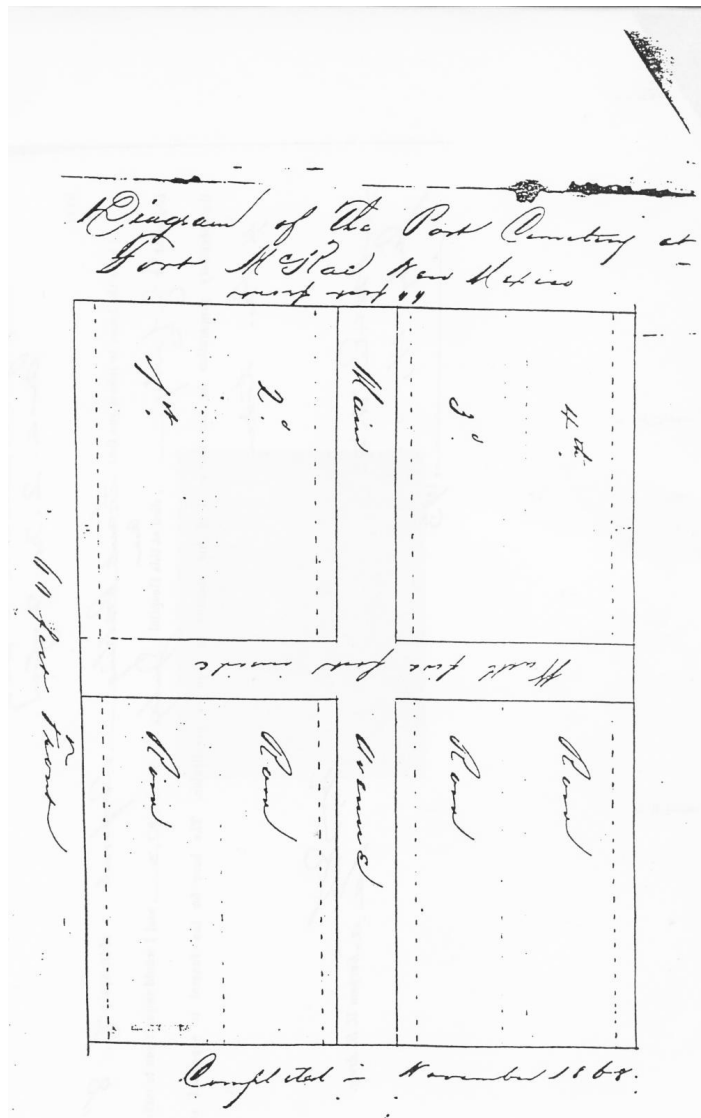 Diagram of the Post Cemetery at
Fort McRae New Mexico
feet front
1st
2d
Main
3d
4th
60 feet Front
Walk five feet inside
Row
Row
Avenue
Row
Row
Completed in November 1868.